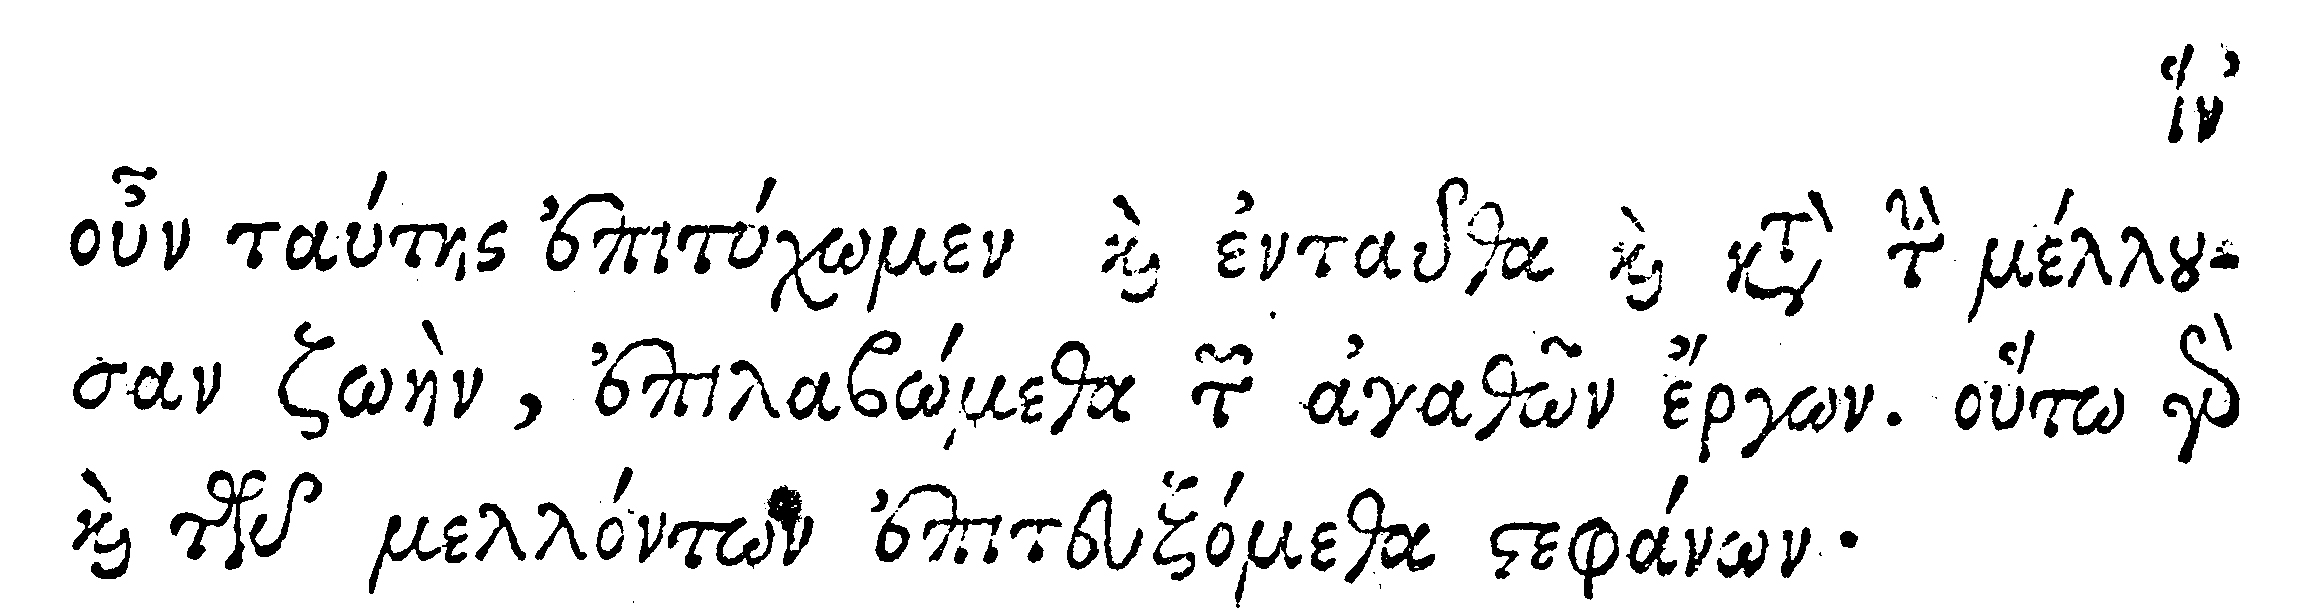 ἵν'
οὖν ταύτης ἐπιτύχωμεν καὶ ἐνταῦθα καὶ κατὰ τὴν μέλλου-
σαν ζωὴν, ἐπιλαβώμεθα τῶν ἀγαθῶν ἔργων. οὕτω γὰρ
καὶ τῶν μελλόντων ἐπιτευξόμεθα στεφάνων.